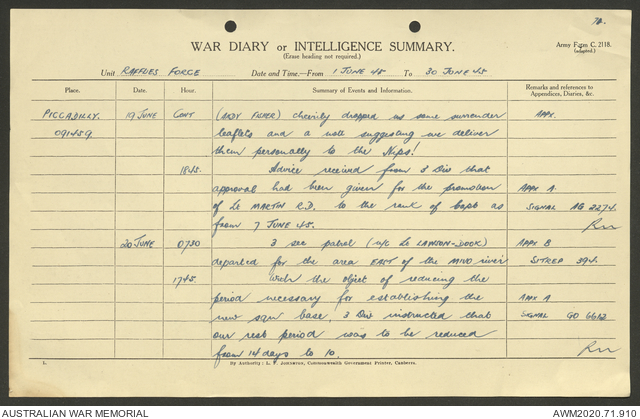 72.
WAR DIARY or INTELLIGENCE SUMMARY.
(Erase heading not required.)
Army Form C. 2118.
(adapted.)
Unit RAFFLES FORCE Date and Time.—From 1 JUNE 45 To 30 JUNE 45.
Place. Date. Hour. Summary of Events and Information. Remarks and references to Appendices, Diaries, &c.
PICCADILLY. 19 JUNE CONT (ANDY FISHER) cheerily dropped us some surrender APPX.
091459 leaflets and a note suggesting we deliver
them personally to the Nips!
1845. Advice received from 3 Div that
approval had been given for the promotion APPX A
of Lt MARTIN R.D. to the rank of Capt as SIGNAL AG 2274.
from 7 JUNE 45.
20 JUNE 0730 3 sec patrol (u/c Lt LAWSON-DOOK) APPX B
departed for the area EAST of the MIVO river SITREP 394.
1745. With the object of reducing the
period necessary for establishing the APPX A
new sqn base, 3 Div instructed that SIGNAL GO 6612
our rest period was to be reduced
from 14 days to 10.
L. By Authority: L. F. Johnston, Commonwealth Government Printer, Canberra.
AUSTRALIAN WAR MEMORIAL AWM2020.71.910